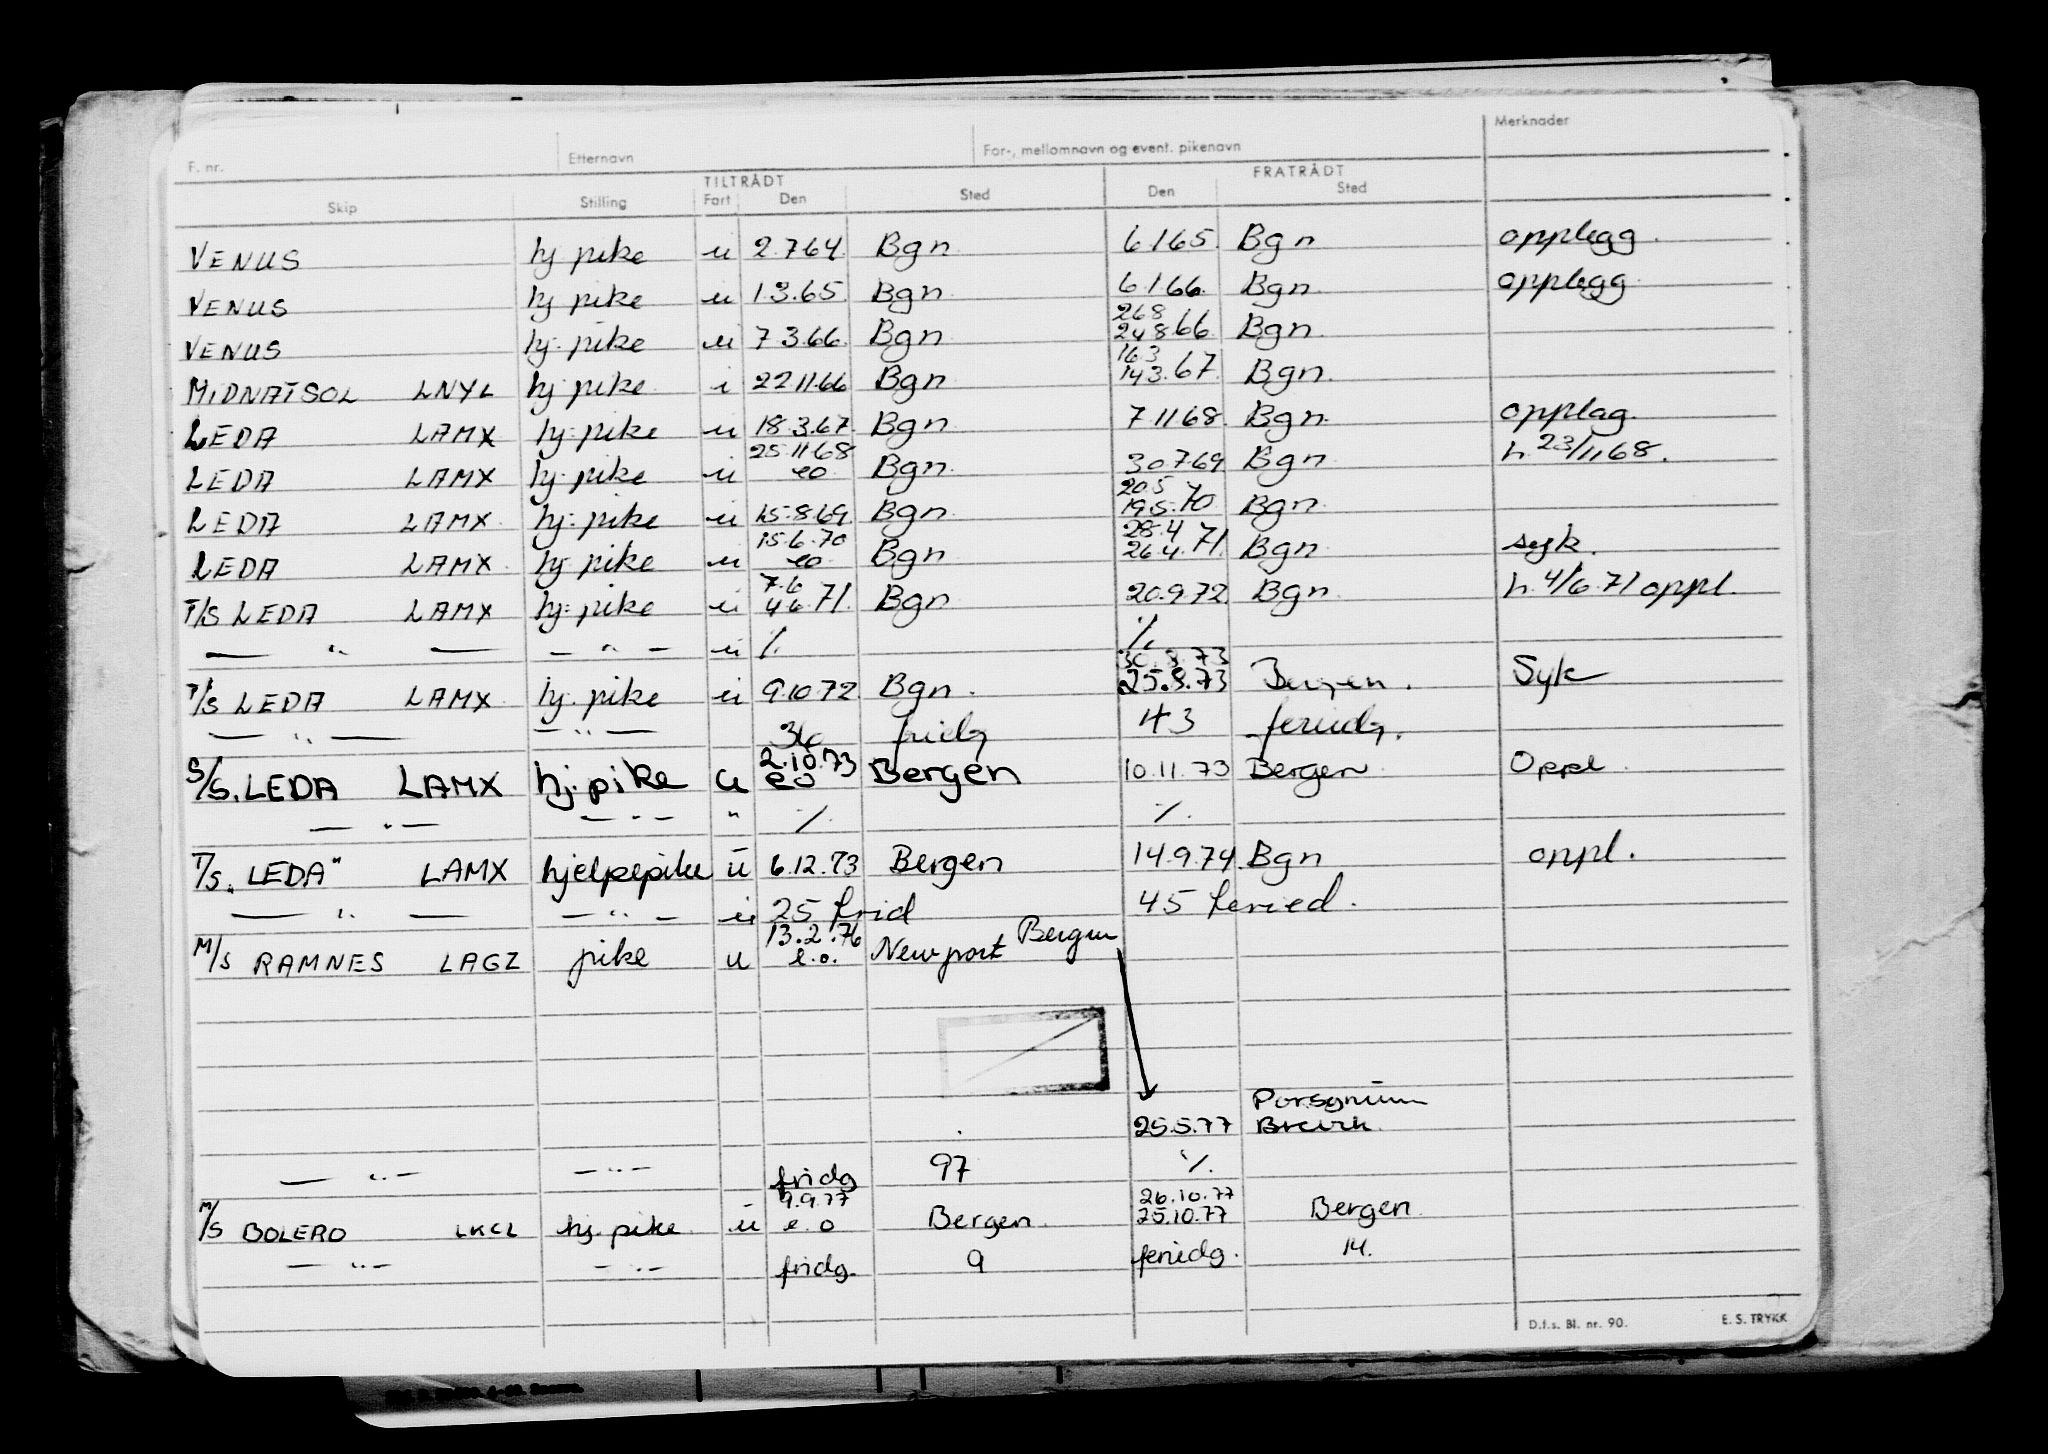 F. nr. Etternavn For-, mellomnavn og event. pikenavn Merknader
TILTRÅDT FRATRÅDT
Skip Stilling Fart Den Sted Den Sted
VENUS hj pike u 2.7.64 Bgn 6.1.65. Bgn opplegg.
VENUS hj pike u 1.3.65. Bgn 6.1.66. Bgn. opplegg
26.8
VENUS hj. pike u 7.3.66. Bgn 24.8.66. Bgn.
16.3
MIDNATSOL LNYL hj pike i 22.11.66 Bgn 14.3.67. Bgn.
LEDA LAMX hj. pike u 18.3.67. Bgn 7.11.68. Bgn. opplag.
25.11.68
LEDA LAMX hj. pike u eo Bgn. 30.7.69 Bgn h. 23/11 68.
20.5
LEDA LAMX. hj. pike u 15.8.69. Bgn 19.5.70 Bgn
15.6.70 28.4
LEDA LAMX. hj. pike u eo Bgn 26.4.71. Bgn syk.
7.6
T/S LEDA LAMX hj. pike u 4.6.71. Bgn 20.9.72. Bgn. h. 4/6.71 oppl.
— " — — " — u ·/. ·/.
30.8.73
T/S LEDA LAMX. hj. pike u 9.10.72 Bgn. 25.8.73 Bergen. Syk
— " — — " — 36 fridg 43 feriedg.
2.10.73
S/S. LEDA LAMX hj. pike u eo Bergen 10.11.73 Bergen Oppl.
— " — — " — " ·/. ·/.
T/S. „LEDA" LAMX hjelpepike u 6.12.73 Bergen 14.9.74. Bgn oppl.
— " — — " — u 25 frid 45 feried.
13.2.76 Bergen
M/S RAMNES LAGZ pike u e.o. Newport
Porsgrunn
25.5.77 Brevik
— " — — " — fridg 97 ·/.
9.9.77 26.10.77
M/S BOLERO LKCL hj. pike u e.o Bergen. 25.10.77 Bergen
— " — — " — fridg. 9 feriedg. 14.
D.f.s. Bl. nr. 90. E. S. TRYKK